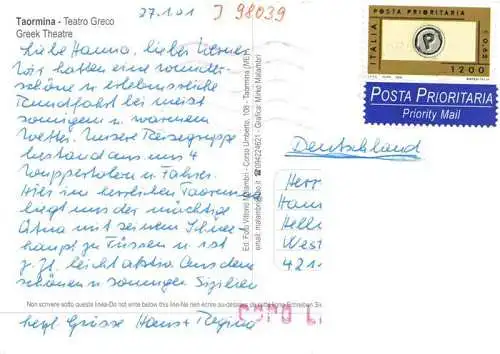 Taormina - Teatro Greco
Greek Theatre
27.1.01
J 98039
Liebe Hanna, lieber Werner
Wir hatten eine wunder-
schöne u erlebnisreiche
Rundfahrt bei meist
sonnigem u. warmem
Wetter. Unsere Reisegruppe
bestand aus nus 4
u. Fahrer.
Hier im herrlichen Taormina
liegt uns der mächtige
Ätna mit seinem Schnee-
haupt zu Füssen u. ist
z. Zt. leicht aktiv. Aus dem
schönen u sonnigen Sizilien
Non scrivere sotto questa linea-Do not write below this line-Ne rien écrire au-dessous de cette ligne
herzl. Grüsse Hans + Regina
Ed. Foto Vittorio Malambrì - Corso Umberto, 106 - Taormina (ME)
email: ☎094224621 - Grafica: Mirko Malambrì
POSTA PRIORITARIA
ITALIA
P
€ 0,62
1200
POSTA PRIORITARIA
Priority Mail
Deutschland
Herr
Han
Helle
West
421